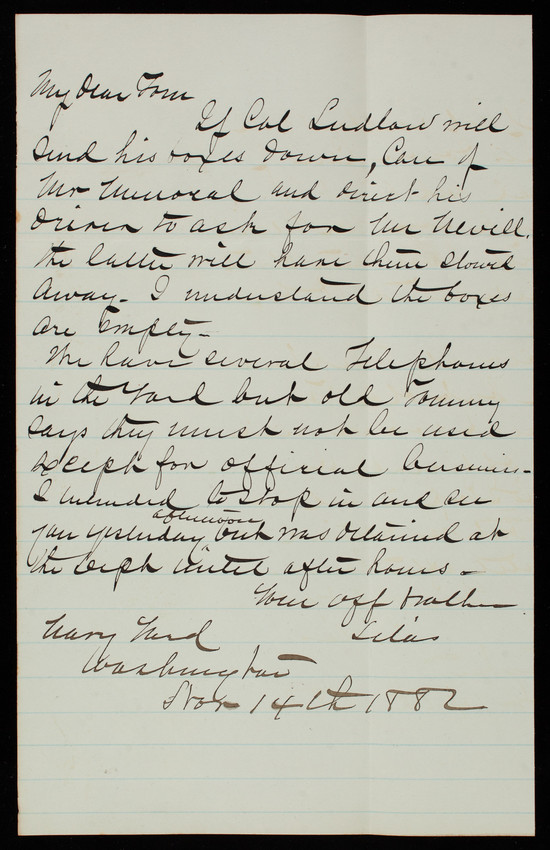 My Dear Tom
If Col Ludlow will
send his boxes down, Care of
Mr and direct his
Driver to ask for Mr Nevill.
the latter will have them stowed
away - I understand the boxes
are empty -
We have several Telephones
in the Yard but old Tommy
says they must not be used
except for official business -
I intended to stop in and see
you yesterday afternoon but was detained at
the Dept until after hours -
Your aff brother
Silas
Navy Yard
Washington
Nov 14th 1882